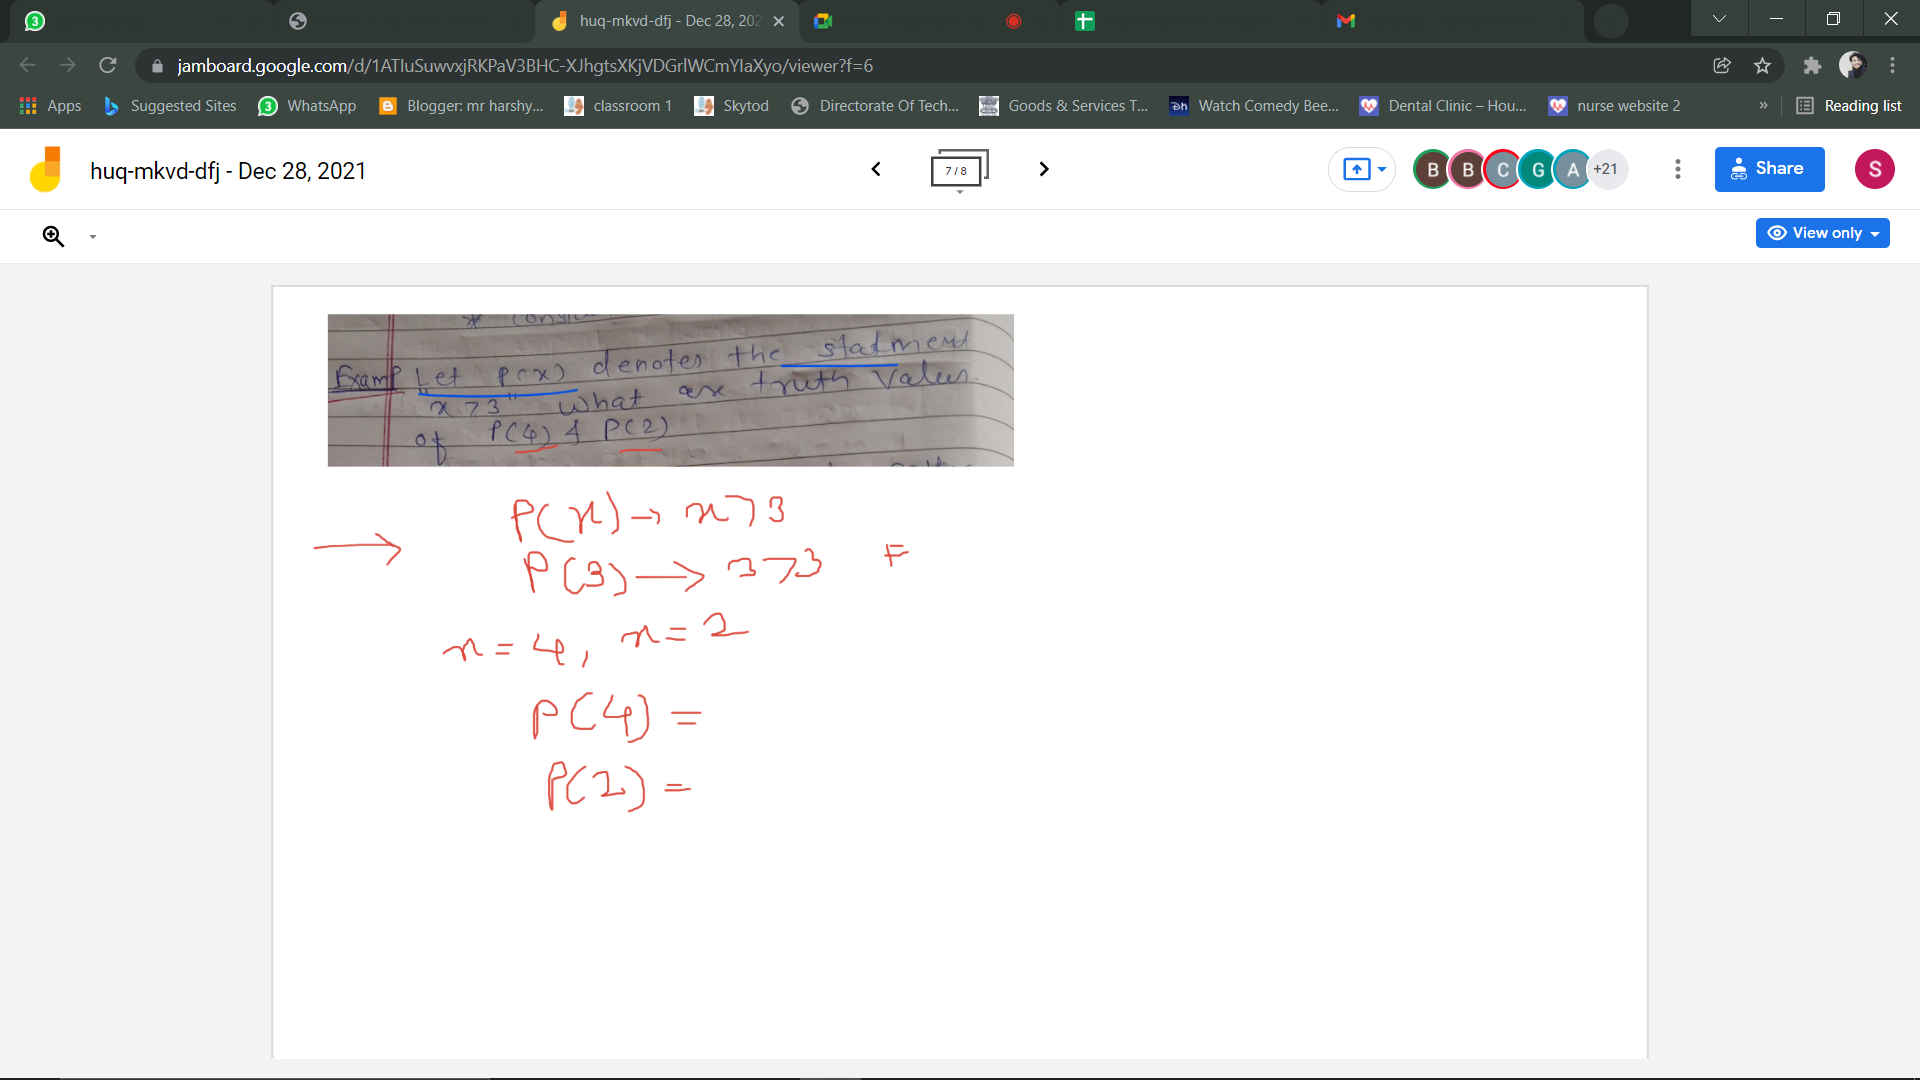 3
huq-mkvd-dfj - Dec 28, 202
jamboard.google.com/d/1ATluSuwvxjRKPaV3BHC-XJhgtsXKjVDGrlWCmYlaXyo/viewer?f=6
Apps Suggested Sites 3 WhatsApp Blogger: mr harshy... classroom 1 Skytod Directorate Of Tech... Goods & Services T... Dh Watch Comedy Bee... Dental Clinic – Hou... nurse website 2 » Reading list
huq-mkvd-dfj - Dec 28, 2021 7 / 8 B B C G A +21 Share S
View only
Examp Let P(x) denotes the statment
"x > 3" What are truth Values
of P(4) & P(2)
P(x) → x > 3
P(3) → 3 > 3 F
x = 4, x = 2
P(4) =
P(2) =